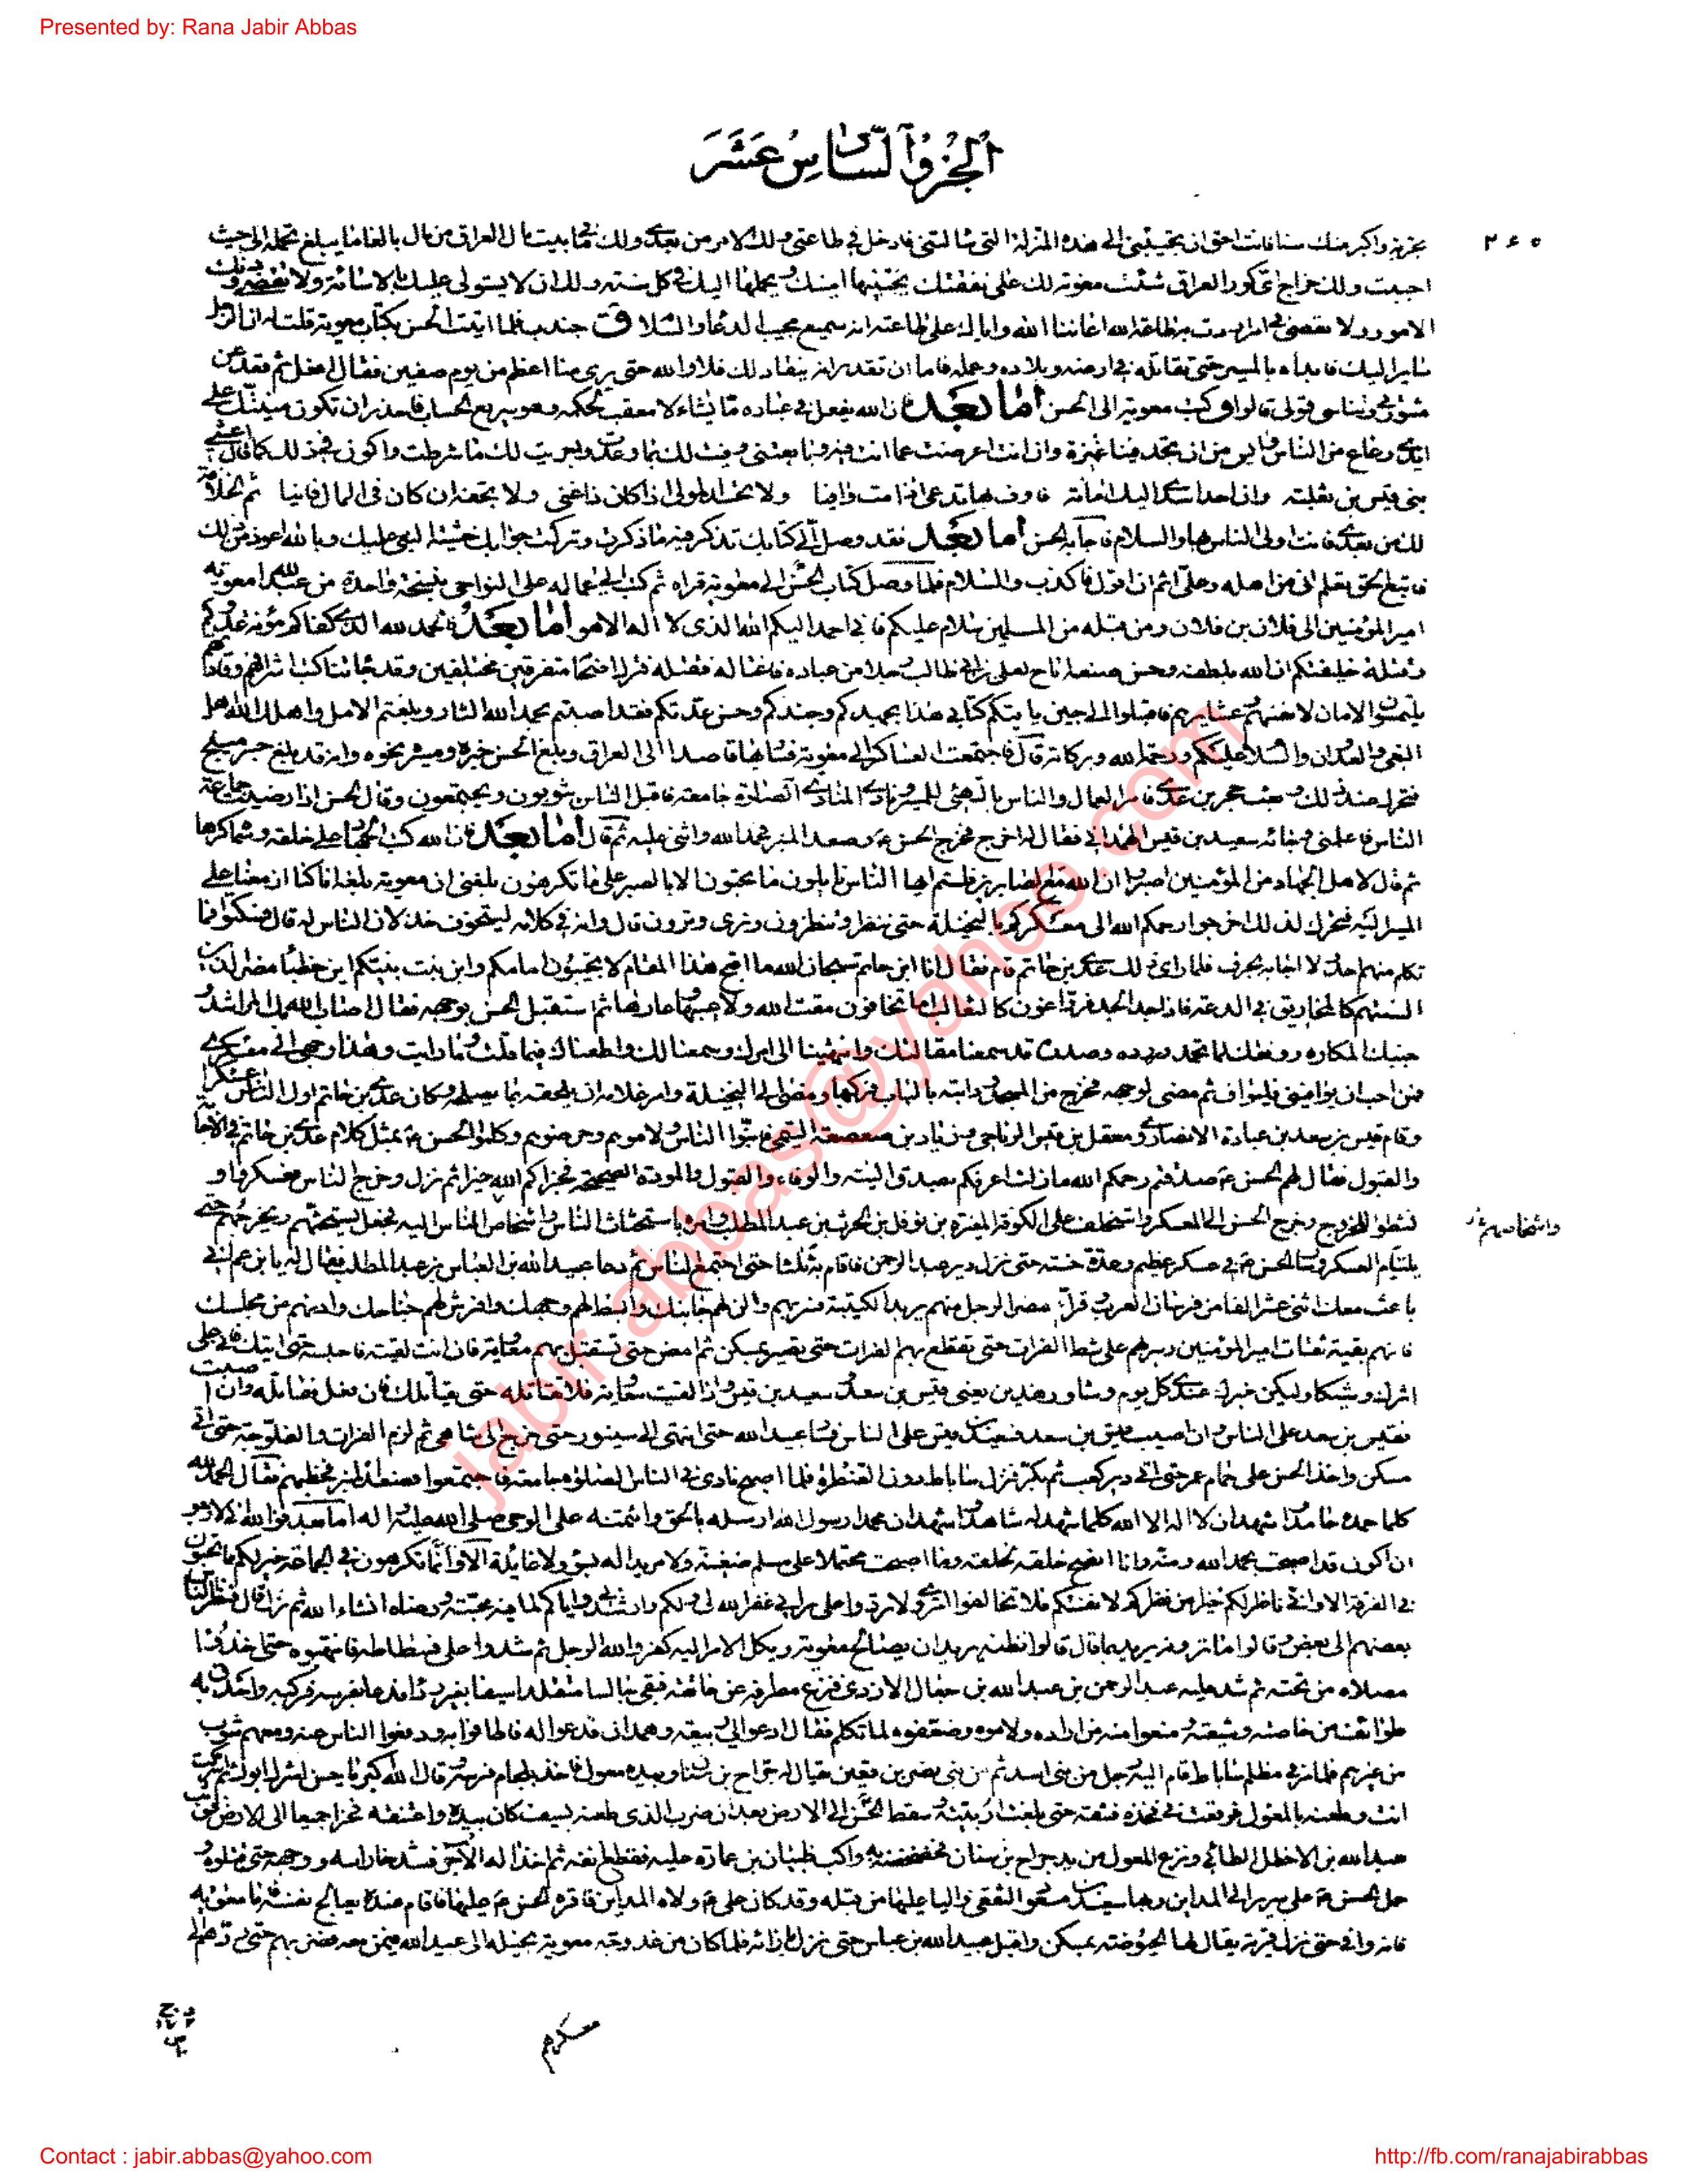 Presented by: Rana Jabir Abbas
الجزؤ السادس عشر
٢٤٥
تجربة واكبر منك سنا فانت احق ان تجيبني الى هذه المنزلة التي سالتني فادخل في طاعتي ولك الامر من بعدي ولك ما في بيت مال العراق من مال بالغا ما يبلغ تحمله الى حيث
احببت ولك خراج اي كور العراق شئت معونة لك على نفقتك يجبيها امينك ويحملها اليك في كل سنة ولك ان لا يستولى عليك بالاساءة ولا تقضى دونك
الامور ولا تعصى في امر اردت به طاعة الله اعاننا الله واياك على طاعته انه سميع مجيب الدعاء والسلام قال جندب فلما اتيت الحسن بكتاب معوية قلت له ان الرجل
سايرا اليك فابدأه بالمسير حتى تقاتله في ارضه وبلاده وعمله فاما ان تقدر انه ينقاد لك فلا والله حتى يرى منا اعظم من يوم صفين فقال افعل ثم قعد عن
مشورتي وتناسى قولي قالوا وكتب معوية الى الحسن اما بعد فان الله يفعل في عباده ما يشاء لا معقب لحكمه وهو سريع الحساب فاحذر ان تكون منيتك على
ايدي رعاع من الناس وايس من ان تجد فينا غميزة وان انت اعرضت عما انت فيه وبايعتني وفيت لك بما وعدت واجريت لك ما شرطت واكون في ذلك كما قال اعشى
بني قيس بن ثعلبة وان احد اسدى اليك امانة فاوف بها تدعى اذا مت وافيا ولا تحسد المولى اذا كان ذا غنى ولا تجفه ان كان في المال فانيا ثم الخلافة
لك من بعدي فانت اولى الناس بها والسلام فاجابه الحسن اما بعد فقد وصل الي كتابك تذكر فيه ما ذكرت وتركت جوابك خشية البغي عليك وبالله اعوذ من ذلك
فاتبع الحق تعلم اني من اهله وعلي اثم ان اقول فاكذب والسلام فلما وصل كتاب الحسن الى معوية قراه ثم كتب الى عماله على النواحي بنسخة واحدة من عبد الله معوية
امير المؤمنين الى فلان بن فلان ومن قبله من المسلمين سلام عليكم فاني احمد اليكم الله الذي لا اله الا هو اما بعد فالحمد لله الذي كفاكم مؤنة عدوكم
وقتلة خليفتكم ان الله بلطفه وحسن صنعه اتاح لعلي بن ابي طالب رجلا من عباده فاغتاله فقتله فترك اصحابه متفرقين مختلفين وقد جائتنا كتب اشرافهم وقادتهم
يلتمسون الامان لانفسهم وعشايرهم فاقبلوا الى حين ياتيكم كتابي هذا بجهدكم وجندكم وحسن عدتكم فقد اصبتم بحمد الله الثار وبلغتم الامل واهلك الله اهل
البغي والعدوان والسلام عليكم ورحمة الله وبركاته قال فاجتمعت العساكر الى معوية فسار بها قاصدا الى العراق وبلغ الحسن خبره ومسيره نحوه وانه قد بلغ جسر منبج
فتحرك عند ذلك وبعث حجر بن عدي فامر العمال والناس بالتهيئ للمسير ونادى المنادي الصلوة جامعة فاقبل الناس يثوبون ويجتمعون وقال الحسن اذا رضيت جماعة
الناس فاعلمني وجائه سعيد بن قيس الهمداني فقال له اخرج فخرج الحسن ع وصعد المنبر فحمد الله واثنى عليه ثم قال اما بعد فان الله كتب الجهاد على خلقه وسماه كرها
ثم قال لاهل الجهاد من المؤمنين اصبروا ان الله مع الصابرين فلستم ايها الناس نايلون ما تحبون الا بالصبر على ما تكرهون بلغني ان معوية بلغه انا كنا ازمعنا على
المسير اليه فتحرك لذلك اخرجوا رحمكم الله الى معسكركم بالنخيلة حتى ننظر وتنظرون ونرى وترون قال وانه في كلامه ليتخوف خذلان الناس له قال فسكتوا فما
تكلم منهم احد ولا اجابه بحرف فلما راى ذلك عدي بن حاتم قام فقال انا ابن حاتم سبحان الله ما اقبح هذا المقام الا تجيبون امامكم وابن بنت نبيكم اين خطباء مضر الذين
السنتهم كالمخاريق في الدعة فاذا جد الجد فرواغون كالثعالب اما تخافون مقت الله ولا عيبها وعارها ثم استقبل الحسن بوجهه فقال اصاب الله بك المراشد
وجنبك المكاره ووفقك لما تحمد ورده وصدره قد سمعنا مقالتك وانتهينا الى امرك وسمعنا لك واطعناك فيما قلت وما رايت وهذا وجهي الى معسكري
فمن احب ان يوافيني فليواف ثم مضى لوجهه فخرج من المسجد ودابته بالباب فركبها ومضى الى النخيلة وامر غلامه ان يلحقه بما يصلحه وكان عدي بن حاتم اول الناس عسكرا
وقام قيس بن سعد بن عبادة الانصاري ومعقل بن قيس الرياحي وزياد بن صعصعة التيمي فانبوا الناس ولاموهم وحرضوهم وكلموا الحسن ع بمثل كلام عدي بن حاتم في الاجابة
والقبول فقال لهم الحسن ع صدقتم رحمكم الله ما زلت اعرفكم بصدق النية والوفاء والقبول والمودة الصحيحة فجزاكم الله خيرا ثم نزل وخرج الناس فعسكروا و
نشطوا للخروج وخرج الحسن الى المعسكر واستخلف على الكوفة المغيرة بن نوفل بن الحرث بن عبد المطلب وامره باستحثاث الناس واشخاص الناس اليه فجعل يستحثهم ويخرجهم حتى
واشخاصهم
يلتئم العسكر وسار الحسن ع في عسكر عظيم وعدة حسنة حتى نزل دير عبد الرحمن فاقام به ثلثا حتى اجتمع الناس ثم دعا عبيد الله بن العباس بن عبد المطلب فقال له يابن عم اني
باعث معك اثني عشر الفا من فرسان العرب وقراء مضر الرجل منهم يريد الكتيبة فسر بهم والن لهم جانبك وابسط لهم وجهك وافرش لهم جناحك وادنهم من مجلسك
فانهم بقية ثقات امير المؤمنين وسر بهم على شط الفرات حتى تقطع بهم الفرات حتى تصير بمسكن ثم امض حتى تستقبل بهم معوية فان انت لقيته فاحبسه حتى اتيك فاني على
اثرك وشيكا وليكن خبرك عندي كل يوم وشاور هذين يعني قيس بن سعد وسعيد بن قيس واذا لقيت معوية فلا تقاتله حتى يقاتلك فان فعل فقاتله وان اصبت
فقيس بن سعد على الناس وان اصيب قيس بن سعد فسعيد بن قيس على الناس فسار عبيد الله حتى انتهى الى سينور حتى خرج الى شاهي ثم لزم الفرات والفلوجة حتى اتى
مسكن واخذ الحسن على حمام عمر حتى اتى دير كعب ثم بكر فنزل ساباط دون القنطرة فلما اصبح نادى في الناس الصلوة جامعة فاجتمعوا فصعد المنبر فخطبهم فقال الحمد لله
كلما حمده حامد واشهد ان لا اله الا الله كلما شهد له شاهد واشهد ان محمدا رسول الله ارسله بالحق وائتمنه على الوحي صلى الله عليه واله اما بعد فوالله اني لارجو
ان اكون قد اصبحت بحمد الله ومنه وانا انصح خلقه لخلقه وما اصبحت محتملا على مسلم ضغينة ولا مريدا له بسوء ولا غايلة الا وان ما تكرهون في الجماعة خير لكم مما تحبون
في الفرقة الا واني ناظر لكم خيرا من نظركم لانفسكم فلا تخالفوا امري ولا تردوا علي رايي غفر الله لي ولكم وارشدني واياكم لما فيه محبته ورضاه انشاء الله ثم نزل قال فنظر الناس
بعضهم الى بعض وقالوا ما ترونه يريد بما قال قالوا نظنه يريد ان يصالح معوية ويكل الامر اليه كفر والله الرجل ثم شدوا على فسطاطه فانتهبوه حتى اخذوا
مصلاه من تحته ثم شد عليه عبد الرحمن بن عبد الله بن جعال الازدي فنزع مطرفه عن عاتقه فبقي جالسا متقلدا سيفا بغير رداء فدعا بفرسه فركبه واحدق به
طوائف من خاصته وشيعته ومنعوا منه من اراده ولاموه وضعفوه لما تكلم فقال ادعوا لي ربيعة وهمدان فدعوا له فاطافوا به ودفعوا الناس عنه ومعهم شوب
من غيرهم فلما مر في مظلم ساباط قام اليه رجل من بني اسد ثم من بني نصر بن قعين يقال له جراح بن سنان وبيده معول فاخذ بلجام فرسه وقال الله اكبر يا حسن اشرك ابوك ثم اشركت
انت وطعنه بالمعول فوقعت في فخذه فشقته حتى بلغت اربيته وسقط الحسن الى الارض بعد ان ضرب الذي طعنه بسيف كان بيده واعتنقه فخرا جميعا الى الارض فوثب
عبد الله بن الاخطل الطائي ونزع المعول من يد جراح بن سنان فخضخضه به واكب ظبيان بن عمارة عليه فقطع انفه ثم اخذا له الآجر فشدخا راسه ووجهه حتى قتلوه
حمل الحسن ع على سرير الى المداين وبها سعيد بن مسعود الثقفي واليا عليها من قبله وقد كان علي ع ولاه المداين فاقره الحسن ع عليها فاقام عنده يعالج نفسه فاما معوية
فانه وافى حتى نزل قرية يقال لها الحبوضة بمسكن واقبل عبيد الله بن عباس حتى نزل بازائه فلما كان من غد وجه معوية بخيله الى عبيد الله فيمن معه فضربهم حتى ردهم الى
معسكرهم
jabir.abbas@yahoo.com
Contact : jabir.abbas@yahoo.com
http://fb.com/ranajabirabbas